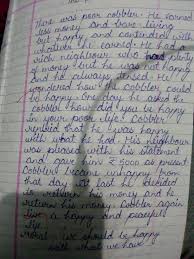 There was poor cobbler. He earned
less money and was living
but happy and contended with
whatever he earned. He had a
rich neighbour who had plenty
of money but he was not happy
and he always tensed. He
wondered how the cobbler could
be happy. One day he asked the
cobbler how did you be happy
in your poor life? Cobbler
replied that he was happy
with what he had. His neighbour
was pleased with his statement
and gave him ₹ 5000 as present.
Cobbler became unhappy from
that day. At last he decided
to return his money and he
return his money. Cobbler again
live a happy and peaceful
life.
Moral: we should be happy
with what we have